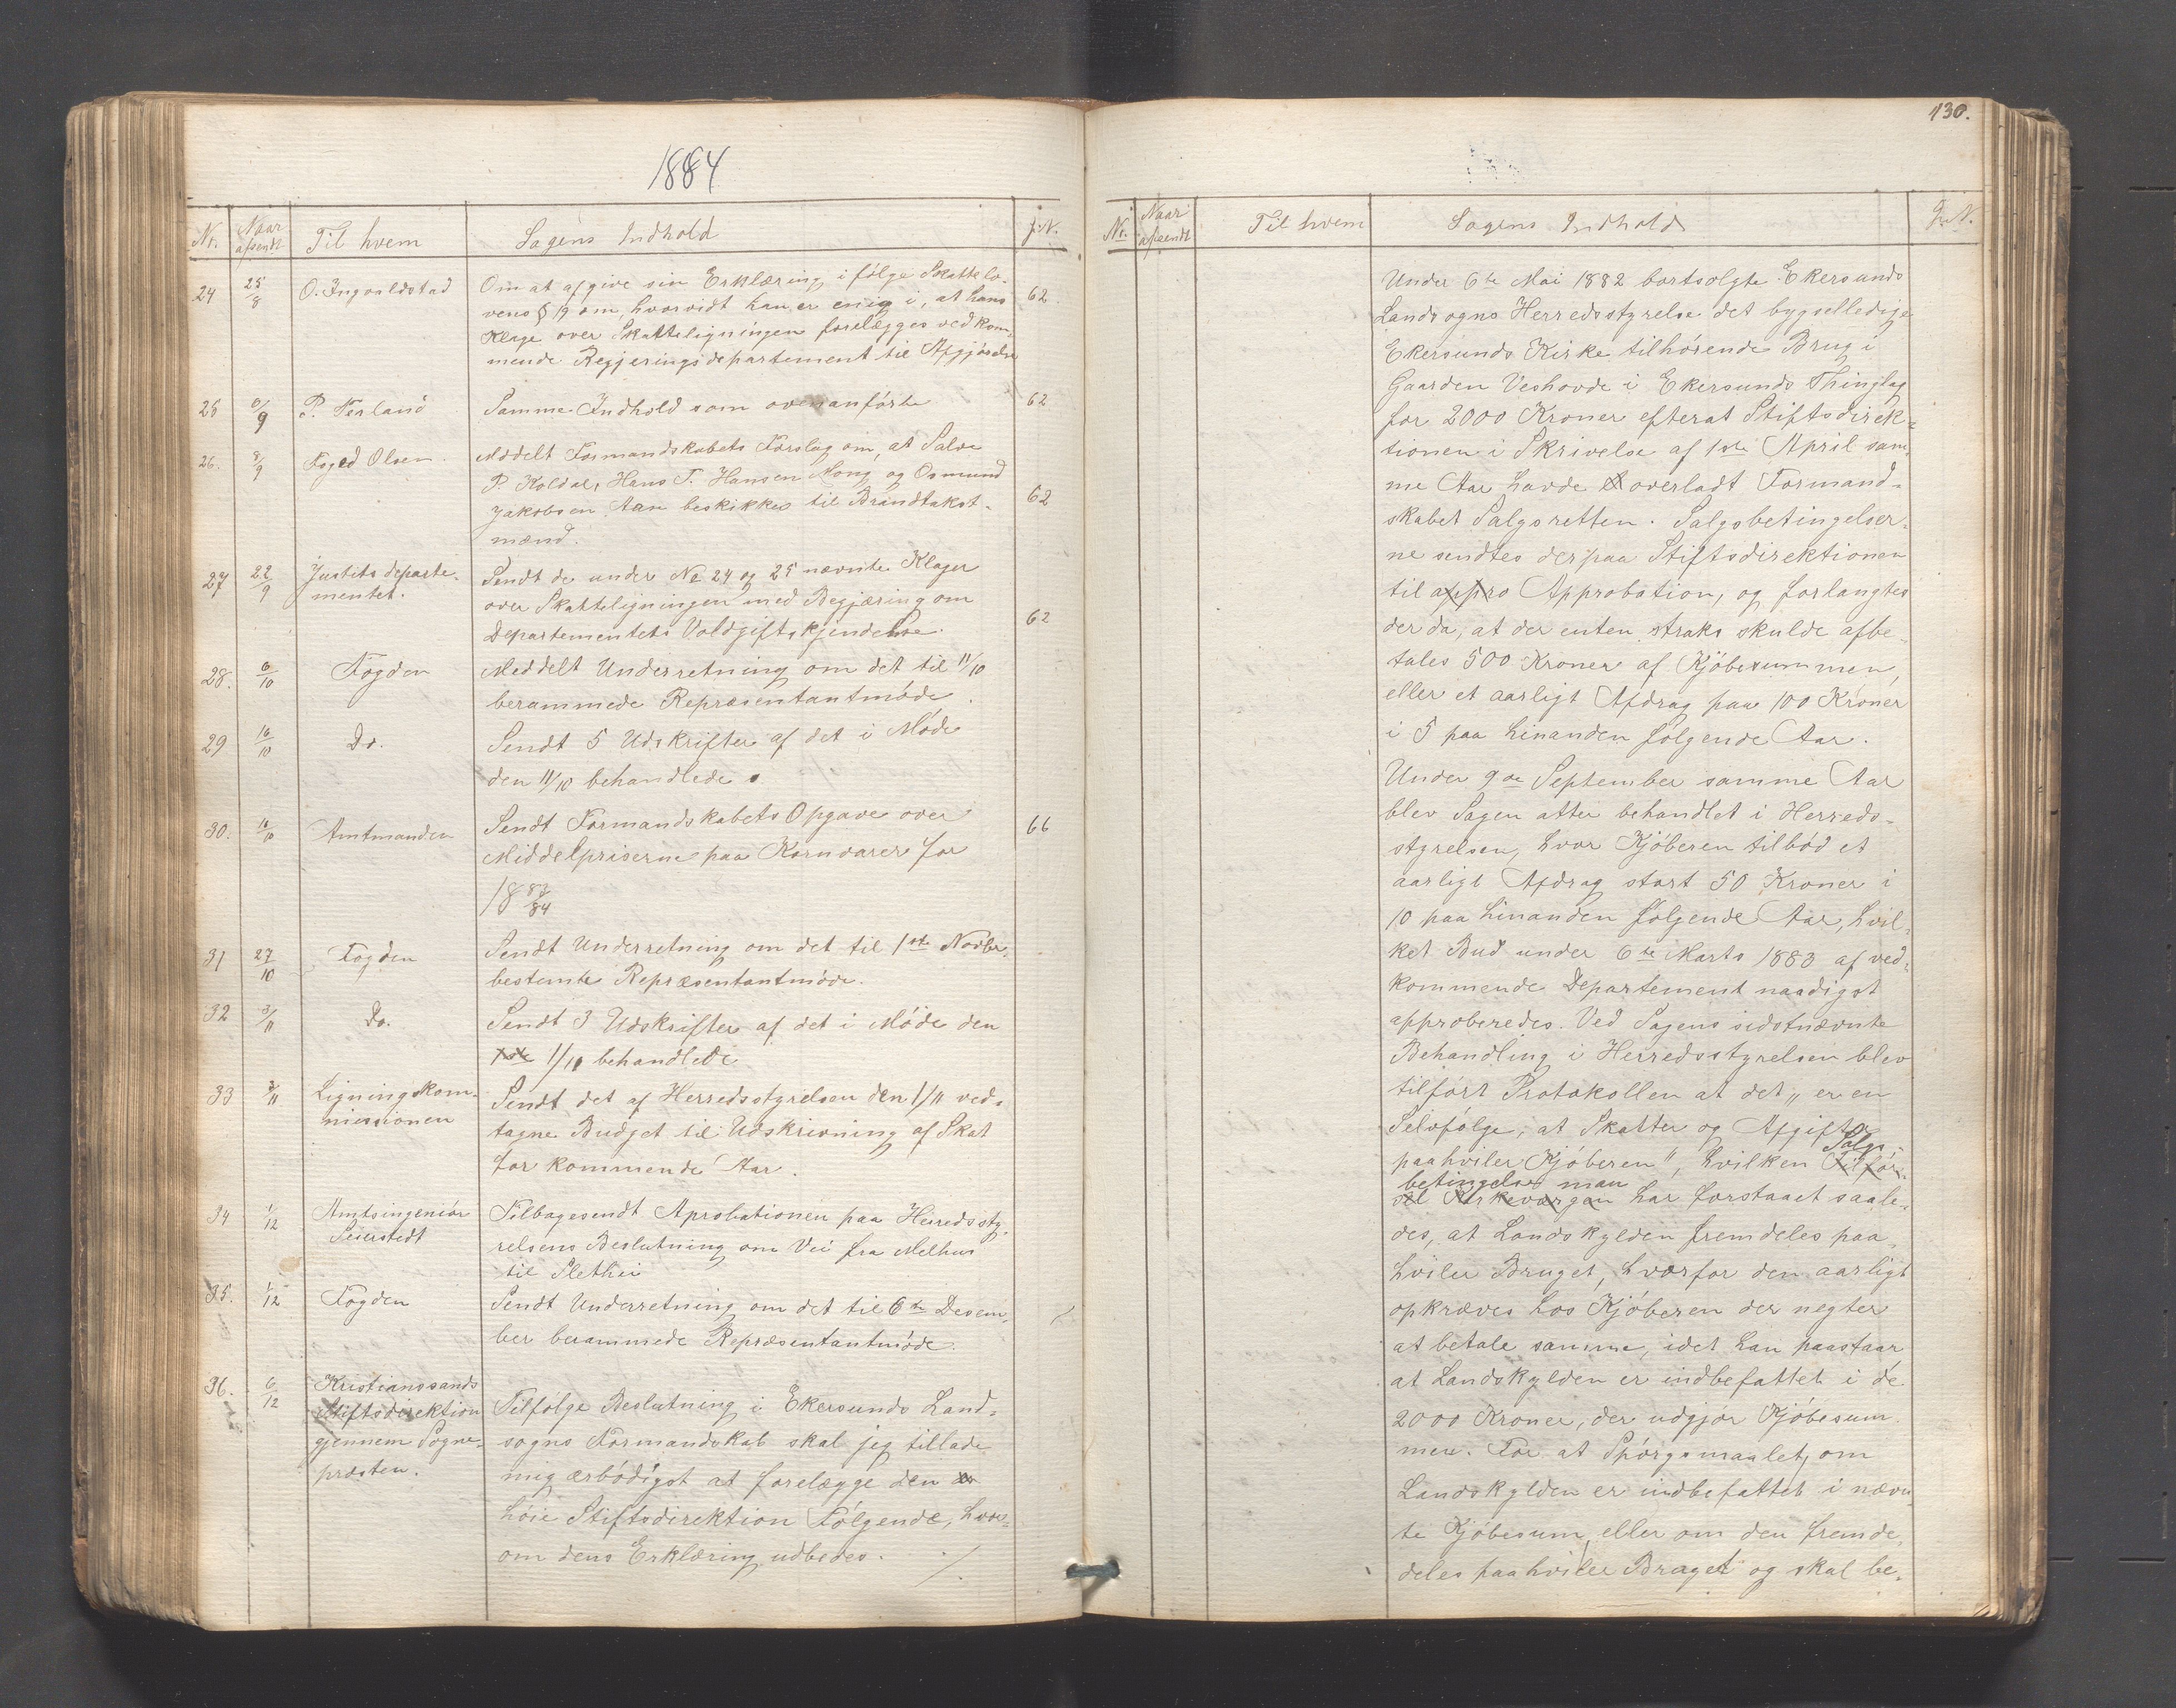 1884
No. Naar afsendt Til hvem Sagens Indhold J.N.
24 25/8 O. Ingvaldstad Om at afgive sin Erklæring i følge Skattelo-
vens § 19 om, hvorvidt han er enig i, at hans 62
Klage over Skatteligningen forelægges vedkom-
mende Regjeringsdepartement til Afgjørelse
25 6/9 P. Terland Samme Indhold som ovenanførte 62
26. 8/9 Foged Olsen Meddelt Formandskabets Forslag om, at Salve
P. Koldal, Hans T. Hansen Mong og Osmund
Jakobsen Aan beskikkes til Brandtakst- 62
mænd.
27 22/9 Justitsdeparte- Sendt de under No 24 og 25 nævnte Klager
mentet. over Skatteligningen med Begjæring om
Departementets Voldgiftskjendelse. 62
28. 6/10 Fogden Meddelt Underretning om det til 11/10
berammede Repræsentantmøde.
29 16/10 Do. Sendt 5 Udskrifter af det i Møde
den 11/10 behandlede.
30. 16/10 Amtmanden Sendt Formandskabets Opgave over 66
Middelpriserne paa Kornvarer for
18 83/84
31 27/10 Fogden Sendt Underretning om det til 1ste Novbr.
bestemte Repræsentantmøde.
32 3/11 Do. Sendt 3 Udskrifter af det i Møde den
1ste 1/11 behandlede
33 3/11 Ligningskom- Sendt det af Herredsstyrelsen den 1/11 ved-
missionen tagne Budjet til Udskrivning af Skat
for kommende Aar.
34 1/12 Amtsingeniør Tilbagesendt Aprobationen paa Herredssty-
Seierstedt relsens Beslutning om Vei fra Melhus
til Slethei
35. 1/12 Fogden Sendt Underretning om det til 6te Decem-
ber berammede Repræsentantmøde.
36. 6/12 Kristianssands
Stiftsdirektion Tilfølge Beslutning i Ekersunds Land-
gjennem Sogne- sogns Formandskab skal jeg tillade
præsten. mig ærbødigst at forelægge den
høie Stiftsdirektion Følgende, hvor-
om dens Erklæring udbedes. ./.
130.
No. Naar afsendt Til hvem Sagens Indhold J.N.
Under 6te Mai 1882 bortsolgte Ekersunds
Landsogns Herredsstyrelse det bygselledige
Ekersunds Kirke tilhørende Brug i
Gaarden Veshovde i Ekersunds Thinglag
for 2000 Kroner efterat Stiftsdirek-
tionen i Skrivelse af 1ste April sam-
me Aar havde overladt Formand-
skabet Salgsretten. Salgsbetingelser-
ne sendtes derpaa Stiftsdirektionen
til appro Approbation, og forlangtes
der da, at der enten straks skulde afbe-
tales 500 Kroner af Kjøbesummen,
eller et aarligt Afdrag paa 100 Kroner
i 5 paa hinanden følgende Aar.
Under 9de September samme Aar
blev Sagen atter behandlet i Herreds-
styrelsen, hvor Kjøberen tilbød et
aarligt Afdrag stort 50 Kroner i
10 paa hinanden følgende Aar, hvil-
ket Bud under 6te Marts 1883 af ved-
kommende Departement naadigst
approberedes. Ved Sagens sidstnævnte
Behandling i Herredsstyrelsen blev
tilført Protokollen at det „er en
Selvfølge, at Skatter og Afgifter
paahviler Kjøberen", hvilken Tilfør- Salgs-
sel Kirkeværgen betingelse man har forstaaet saale-
des, at Landskylden fremdeles paa-
hviler Bruget, hvorfor den aarligt
opkræves hos Kjøberen der negter
at betale samme, idet han paastaar
at Landskylden er indbefattet i de
2000 Kroner, der udgjør Kjøbesum-
men. For at Spørgsmaalet, om
Landskylden er indbefattet i nævn-
te Kjøbesum, eller om den frem-
deles paahviler Bruget og skal be-